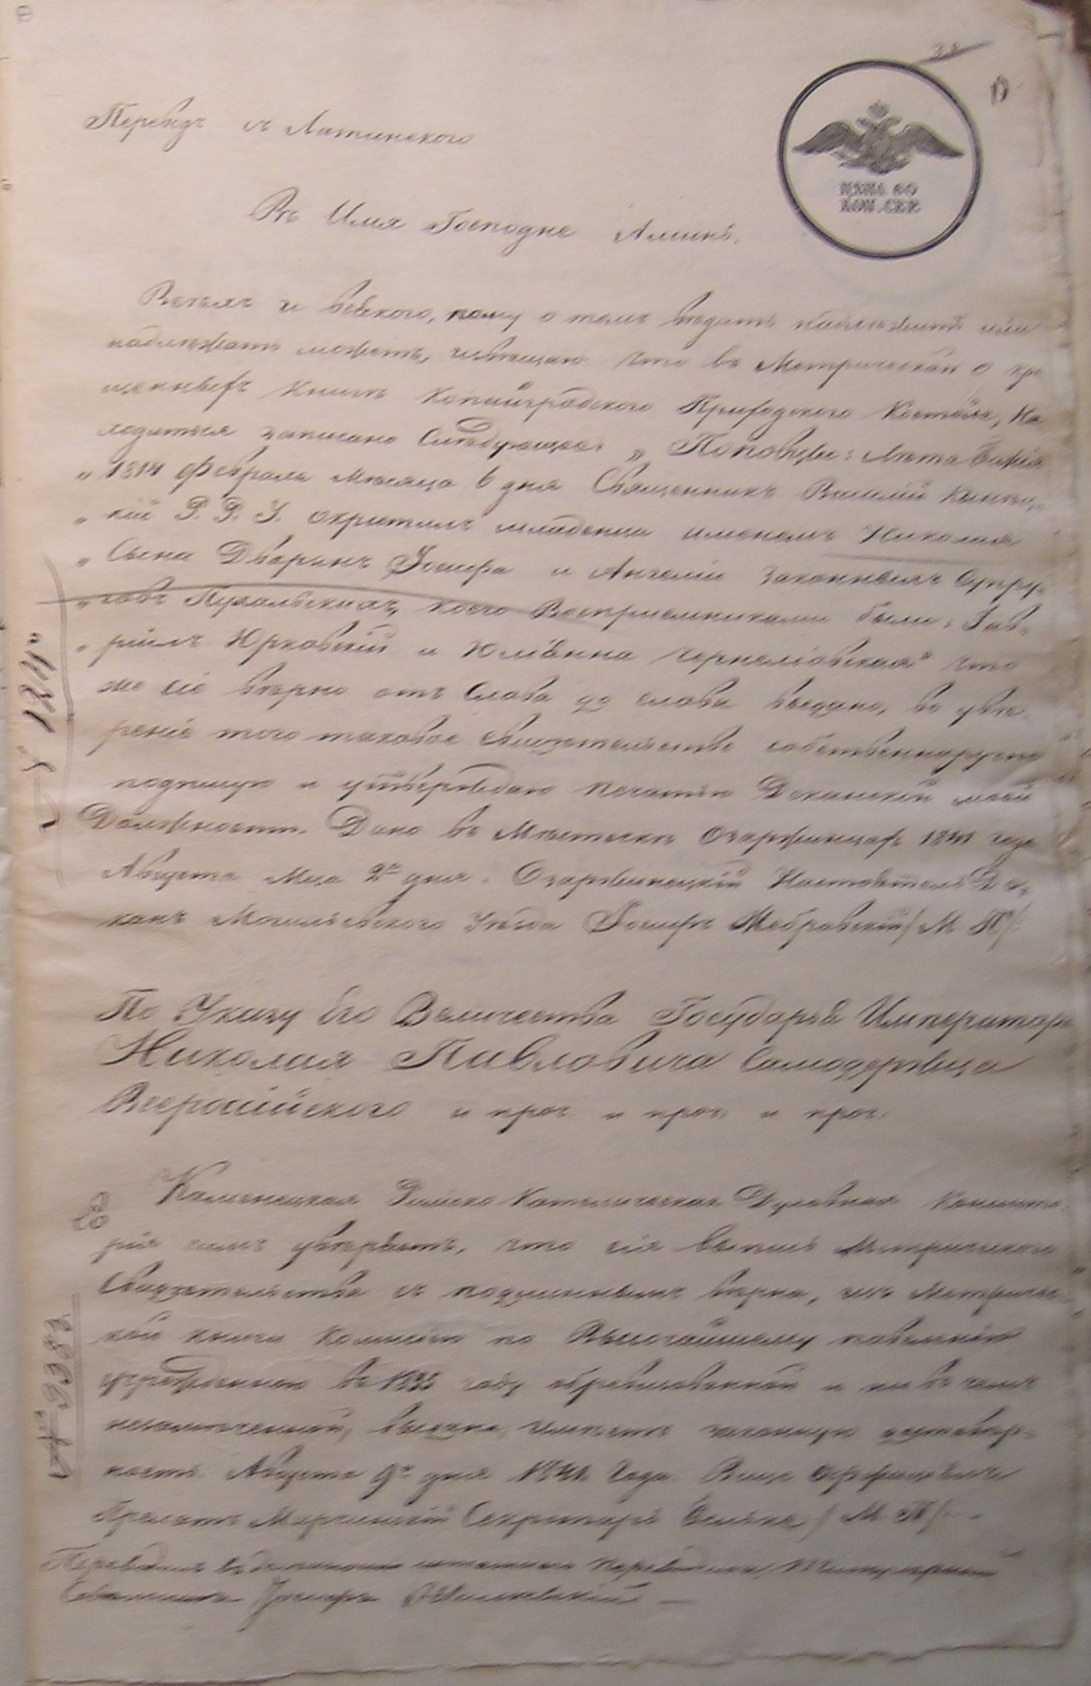 Переводъ съ Латинскаго
ЦѢНА 60
КОП. СЕР.
Въ Имя Господне Аминь.
Всѣмъ и всякого, кому о томъ вѣдать надлежитъ или
надлежать можетъ, извѣщаю что въ Метрической о кре
щенныхъ книгѣ Копайградского Приходского Костела, На
ходится записано Слѣдующее: „ Поповцы: Лѣта Божія
„ 1814 Февраля Мѣсяца 6 дня Священникъ Василій
„ кій Р. Р. У. окрестилъ младенца именемъ Николая
„ Сына Дворянъ Іосифа и Ангеліи законныхъ Супру-
„ говъ коего Восприемниками были: Гав-
„ ріилъ Юрковскій и Юліанна что
же сіе вѣрно отъ слова до слова выдано, въ увѣ
реніе того таковое свидѣтельство собственноручно
подпишу и утверждаю печатью Деканской моей
Должности. Дано въ Мѣстечкѣ Озаринцахъ 1841 года
Августа Мца 2го дня. Озаринецкій Настоятель Де-
канъ Могилевского Уѣзда Іосифъ /М. П./
По Указу Его Величества Государя Императора
Николая Павловича Самодержца
Всероссійского и проч. и проч. и проч.
Каменецкая Римско Католическая Духовная Консисто
рія симъ увѣряетъ, что сія выпись Метрического
Свидѣтельства съ подлиннымъ вѣрна, изъ Метричес
кой книги Комисіею по Высочайшему повелѣнію
учрежденною въ году обревизованной и ни въ чемъ
выдана, имѣетъ законную достовѣр-
ность. Августа 9го дня 1841 Года. Вице Оффиціалъ
Прелатъ Секретарь /М. П./
Переводилъ Титулярный
Совѣтникъ
№ 1840
№ 9983